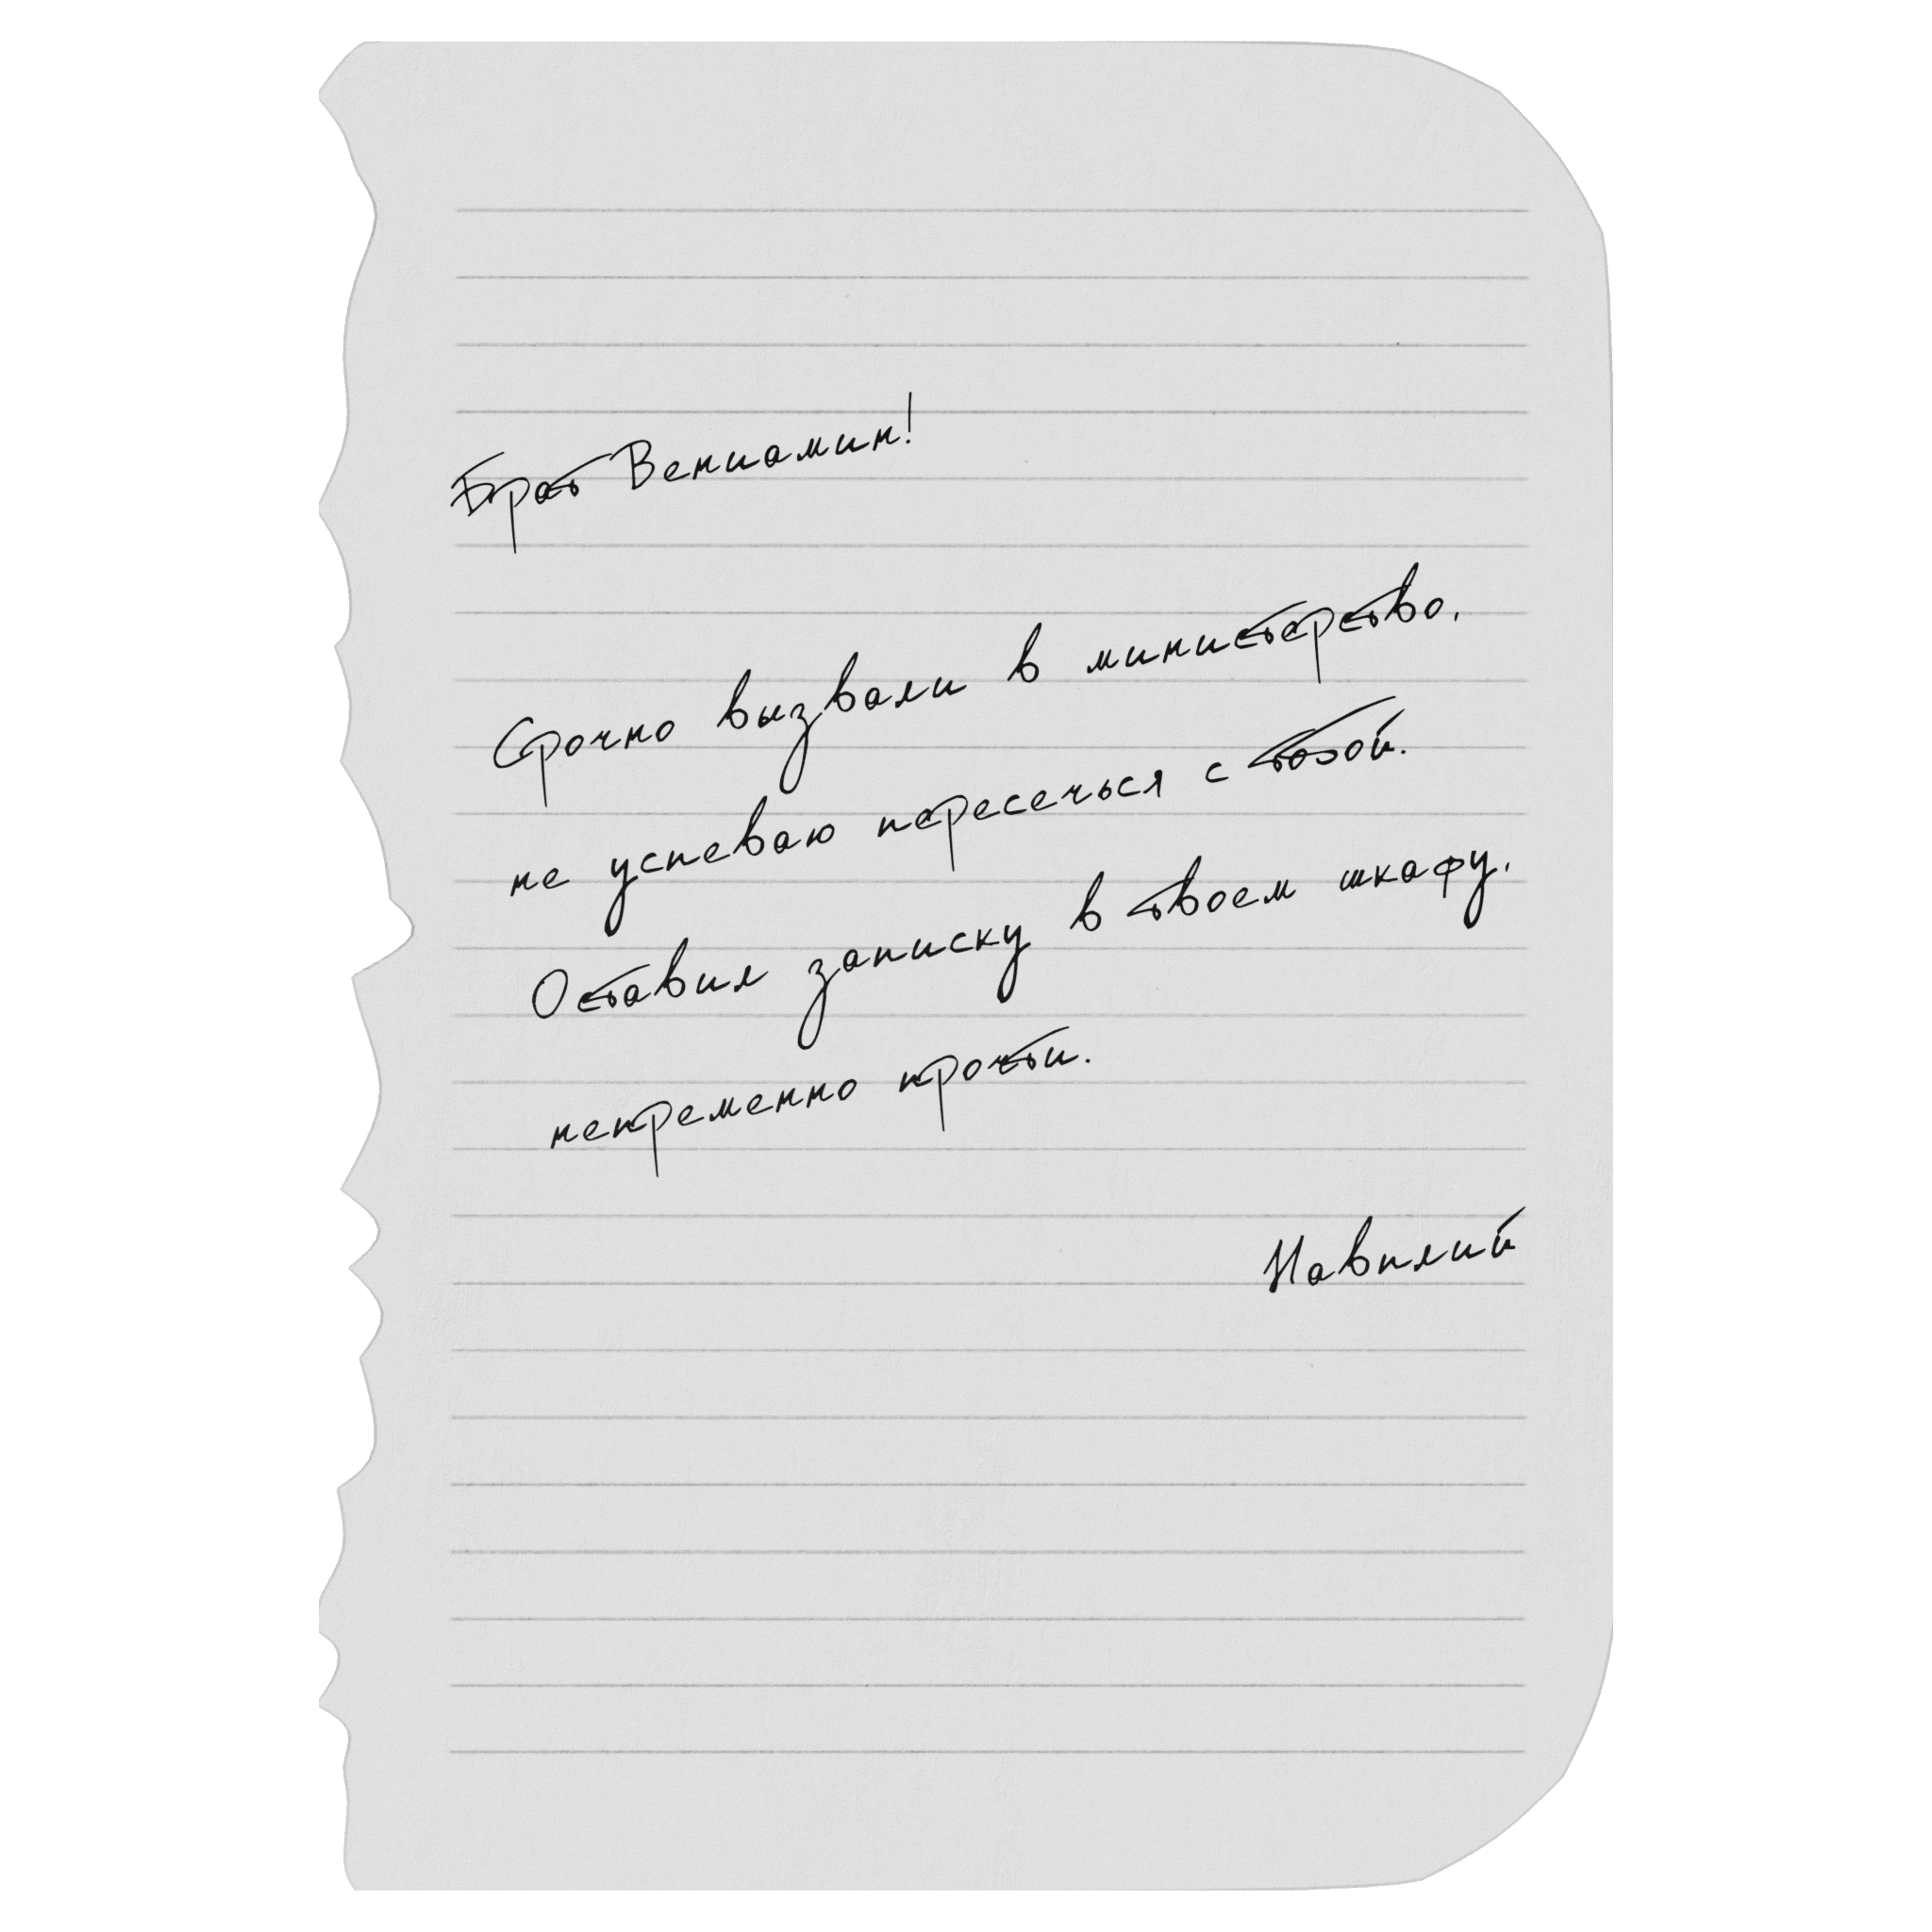 Брат Вениамин!
Срочно вызвали в министерство,
не успеваю пересечься с тобой.
Оставил записку в твоем шкафу,
непременно прочти.
Навилий